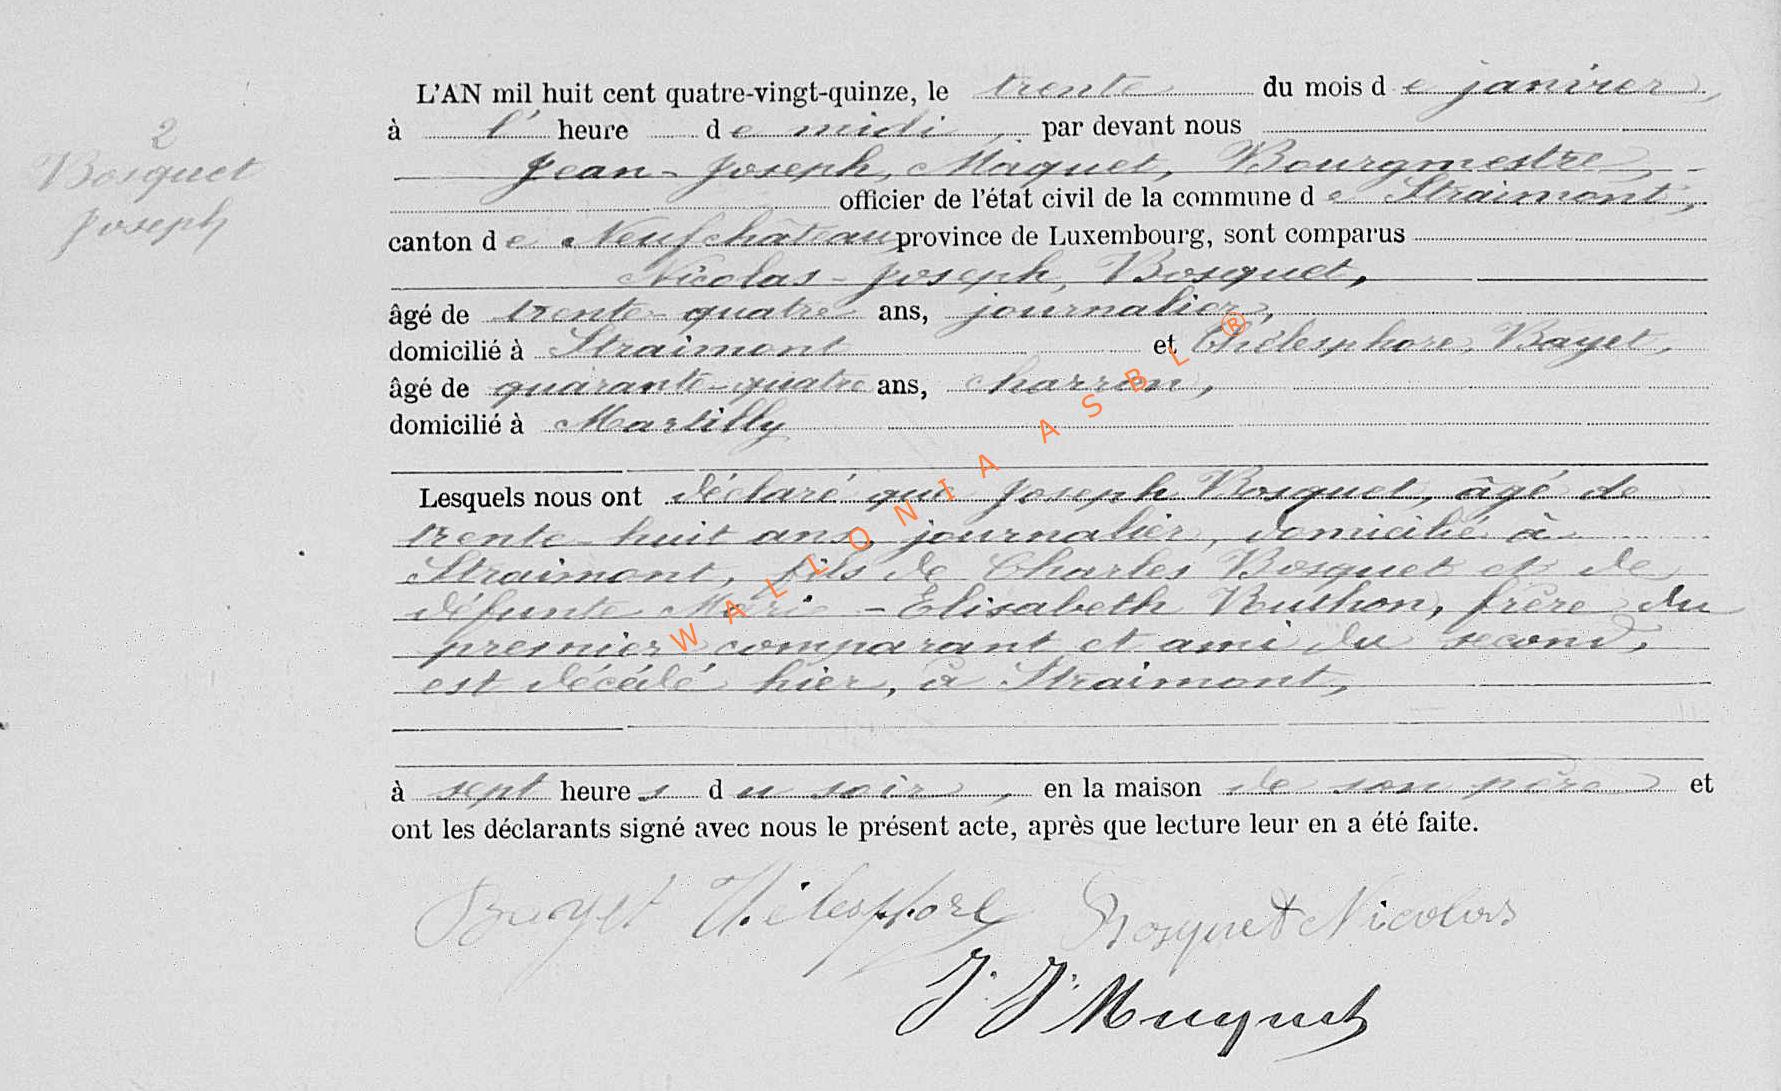 2
Bosquet
Joseph
L'AN mil huit cent quatre-vingt-quinze, le trente du mois de janvier,
à l' heure de midi, par devant nous
Jean-Joseph, Maquet, Bourgmestre,
officier de l'état civil de la commune de Straimont,
canton de Neufchâteau province de Luxembourg, sont comparus
Nicolas-Joseph, Bosquet,
âgé de trente-quatre ans, journalier,
domicilié à Straimont et Thélesphore, Bayet,
âgé de quarante-quatre ans, charron,
domicilié à Martilly
Lesquels nous ont déclaré que Joseph Bosquet, âgé de
trente-huit ans, journalier, domicilié à
Straimont, fils de Charles Bosquet et de
défunte Marie-Elisabeth Buthon, frère du
premier comparant et ami du second,
est décédé hier, à Straimont,
à sept heures du soir, en la maison de son père et
ont les déclarants signé avec nous le présent acte, après que lecture leur en a été faite.
Bayet Thélesphore Bosquet Nicolas
J. J. Maquet
WALLONIA ASBL ®